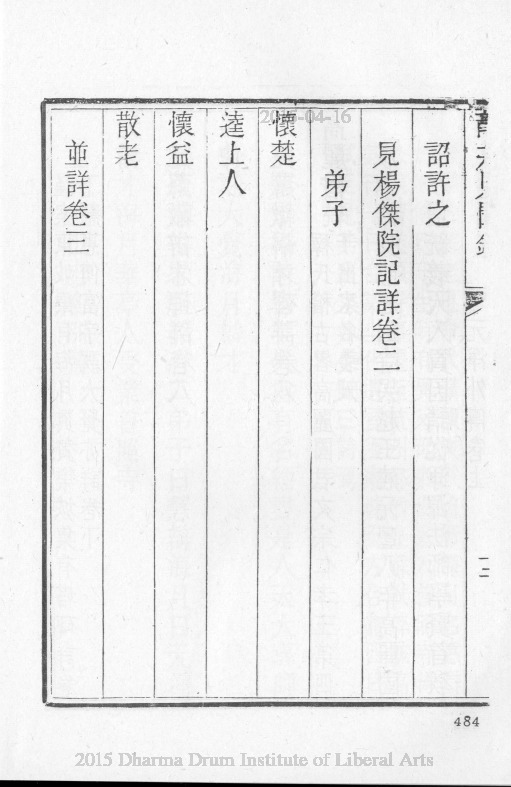 詔許之
見楊傑院記詳卷二
弟子
懷楚
逵上人
懷益
散老
並詳卷三
二
484
2015-04-16
2015 Dharma Drum Institute of Liberal Arts